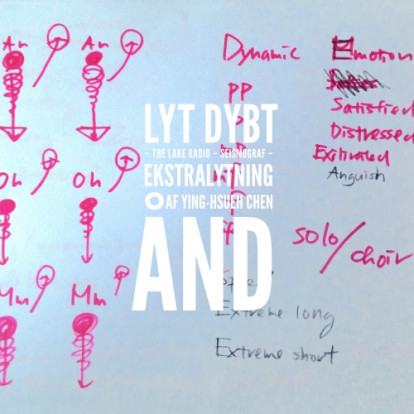 LYT DYBT
– THE LAKE RADIO – SEISMOGRAF –
EKSTRALYTNING
AF YING-HSUEH CHEN
AND
Oh Oh
Mm Mm
Dynamic
pp
f
Emotion
Satisfied
Distressed
Anguish
solo/choir
Extreme long
Extreme short